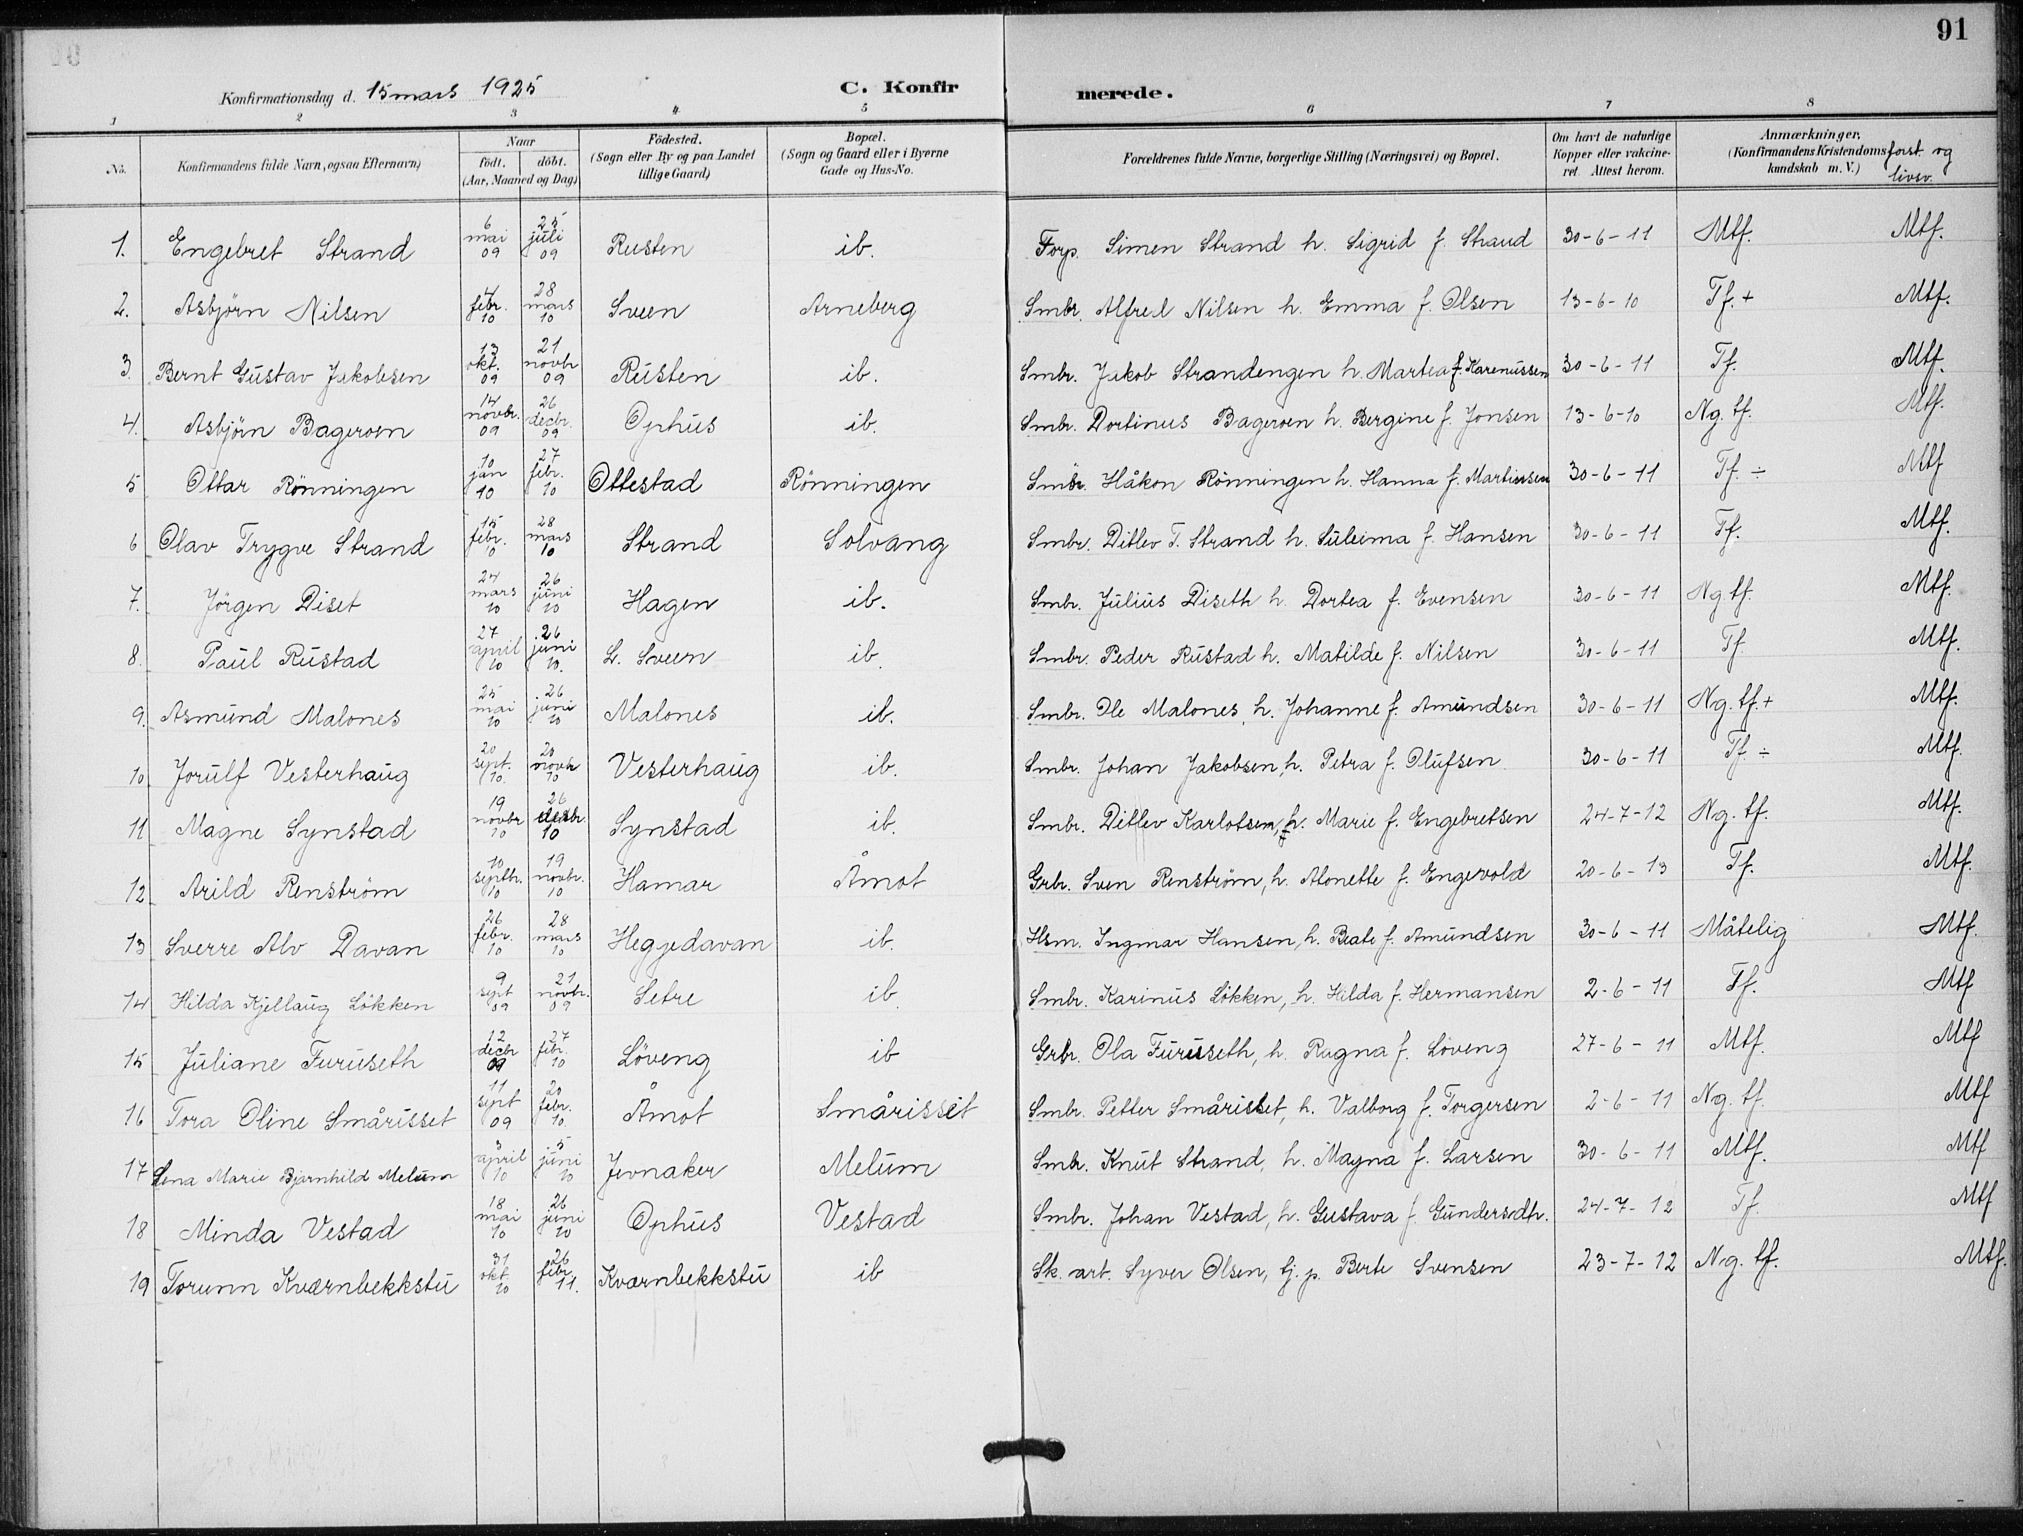 91
Konfirmationsdag d. 15 mars 1925 C. Konfirmerede.
1 2 3 4 5 6 7 8
No. Konfirmandens fulde Navn, ogsaa Efternavn) Naar födt. döbt. (Aar, Maaned og Dag) Födested. (Sogn eller By og paa Landet tillige Gaard) Bopæl. (Sogn og Gaard eller i Byerne Gade og Hus-No. Forældrenes fulde Navne, borgerlige Stilling (Næringsvei) og Bopæl. Om havt de naturlige Kopper eller vakcineret. Attest herom. Anmærkninger. (Konfirmandens Kristendomskundskab m. V.) forst. og livsv.
1. Engebret Strand 6 mai 09 25 juli 09 Rusten ib. Forp. Simen Strand h. Sigrid f. Strand 30-6-11 Mtf. Mtf.
2. Asbjörn Nilsen 4 febr. 10 28 mars 10 Sveen Arneberg Smbr. Alfred Nilsen h. Emma f. Olsen 13-6-10 Tf. + Mtf.
3. Bernt Gustav Jakobsen 13 okt. 09 21 novbr 09 Rusten ib. Smbr. Jakob Strandengen h. Martea f. Karenussen 30-6-11 Tf. Mtf.
4. Asbjörn Bageroen 14 novbr. 09 26 decbr. 09 Ophus ib. Smbr. Dortinus Bageroen h. Bergine f. Jonsen 13-6-10 Ng. tf. Mtf.
5 Ottar Rönningen 10 jan 10 27 febr. 10 Ottestad Rönningen Smbr. Håkon Rönningen h. Hanna f. Martinsen 30-6-11 Tf. ÷ Mtf
6 Olav Trygve Strand 15 febr. 10 28 mars 10 Strand Solvang Smbr. Ditlev T. Strand h. Suleima f. Hansen 30-6-11 Tf. Mtf.
7. Jörgen Diset 24 mars 10 26 juni 10 Hagen ib. Smbr. Julius Diseth h. Dortea f. Evensen 30-6-11 Ng tf. Mtf.
8. Paul Rustad 27 april 10 26 juni 10. L. Sveen ib. Smbr. Peder Rustad h. Matilde f. Nilsen 30-6-11 Tf. Mtf.
9. Asmund Malones 25 mai 10 26 juni 10 Malones ib. Smbr. Ole Malones, h. Johanne f. Amundsen 30-6-11 Ng. tf. + Mtf.
10 Jorulf Vesterhaug 20 sept. 10. 20 novbr 10 Vesterhaug ib. Smbr. Johan Jakobsen, h. Petra f. Olufsen 30-6-11 Tf. ÷ Mtf.
11 Magne Synstad 19 novbr 10 26 decbr. 10 Synstad ib. Smbr. Ditlev Karlotsen, h. Marie f. Engebretsen 24-7-12 Ng. tf. Mtf.
12 Arild Renström 10 septbr. 10 19 novbr. 10 Hamar Åmot Grbr. Sven Renström, h. Alonette f. Engevold 20-6-13 Tf. Mtf.
13 Sverre Alv Davan 26 febr. 10 28 mars 10 Heggedavan ib. Hsm. Ingmar Hansen, h. Beate f. Amundsen 30-6-11 Måtelig Mtf.
14 Hilda Kjellaug Lökken 9 sept 09 21 novbr. 09 Setre ib. Smbr. Karinus Lökken, h. Hilda f. Hermansen 2-6-11 Tf. Mtf
15 Juliane Furuseth 12 decbr 09 27 febr. 10 Löveng ib Grbr. Ola Furuseth, h. Ragna f. Löveng 27-6-11 Mtf. Mtf
16 Tora Oline Smårisset 11 sept 09 20 febr. 10 Åmot Smårisset Smbr. Petter Smårisset, h. Valborg f. Torgersen 2-6-11 Ng. tf. Mtf
17 Lena Marie Bjarnhild Melum 3 april 10 5 juni 10 Jevnaker Melum Smbr. Knut Strand, h. Magna f. Larsen 30-6-11 Mtf. Mtf
18 Minda Vestad 18 mai 10 26 juni 10 Ophus Vestad Smbr. Johan Vestad, h. Gustava f. Gundersdtr. 24-7-12 Tf. Mtf
19 Torunn Kværnbekkstu 31 okt. 10 26 febr. 11. Kværnbekkstu ib Sk. arb. Syver Olsen, tj. p. Berte Svensen 23-7-12 Ng. tf. Mtf.